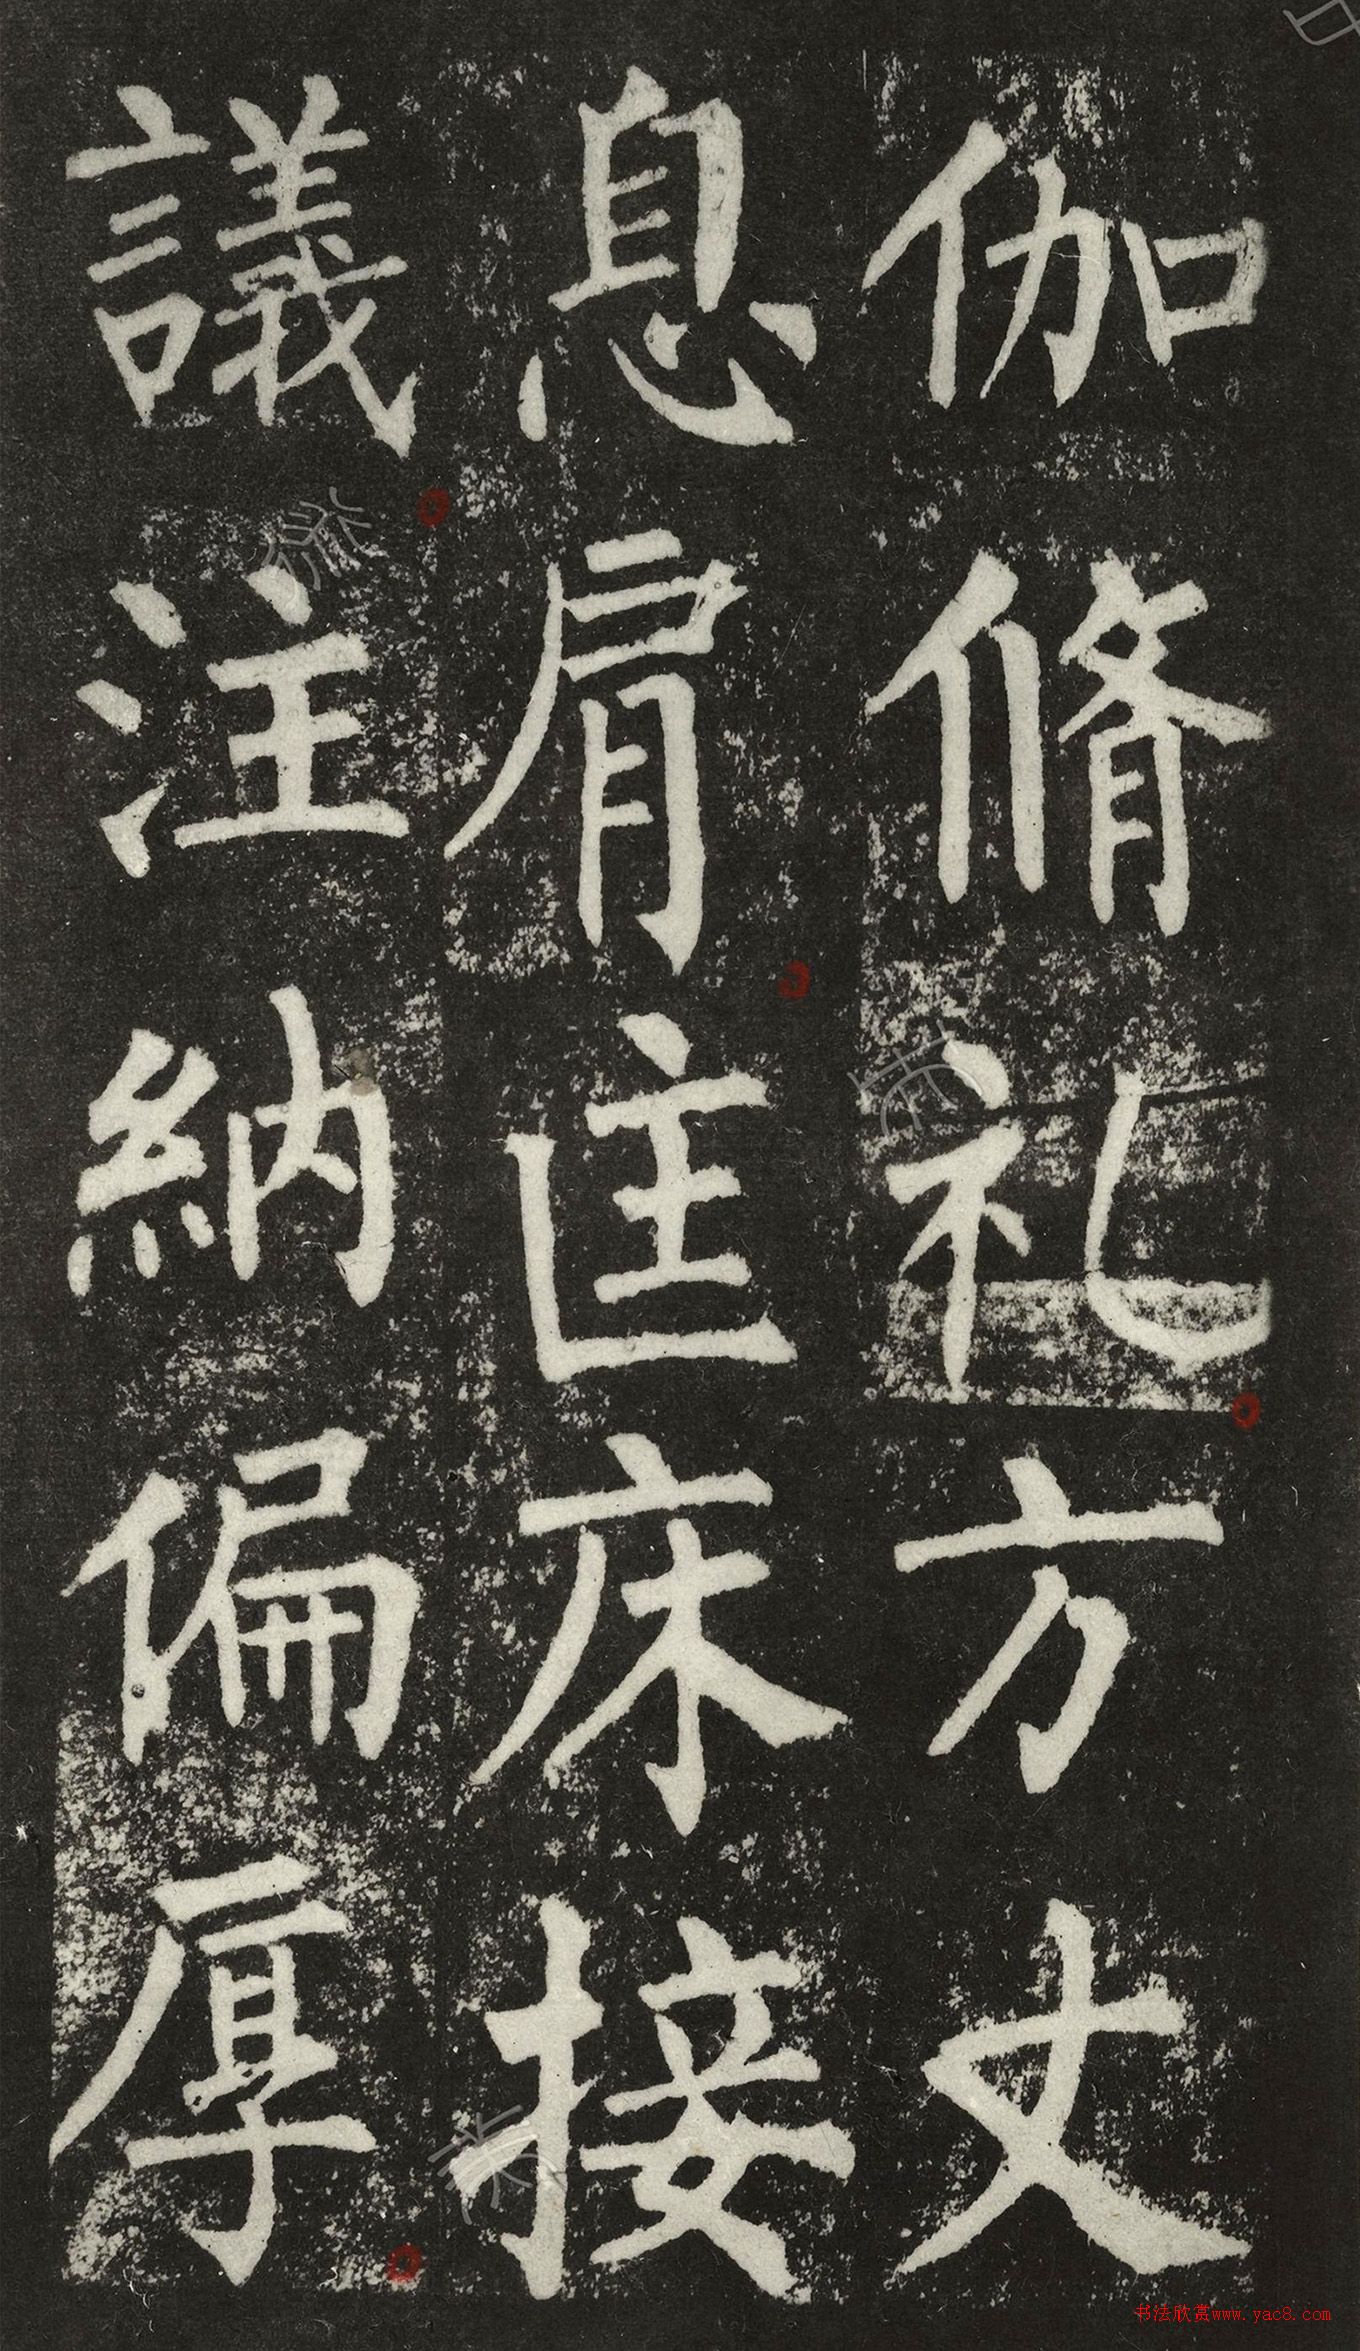 伽脩礼方丈
息肩匡床接
議注納偏厚
书法欣赏www.yac8.com